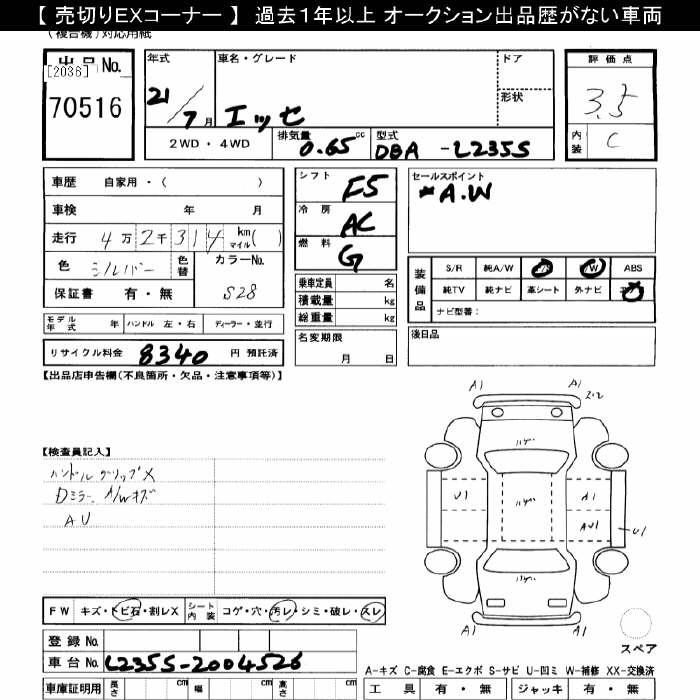 【 売切りEXコーナー 】 過去1年以上 オークション出品歴がない車両
(複合機)対応用紙
出品No.
[2036]
70516
年式
21/7月
車名・グレード
エッセ
ドア
形状
2WD・4WD
排気量 0.65 cc
型式 DBA -L235S
評価点
3.5
内装 C
車歴 自家用・( )
車検 年 月
走行 4万2千314 km マイル( )
色 シルバー
色替
カラーNo. S28
保証書 有・無
シフト F5
冷房 AC
燃料 G
乗車定員 名
積載量 kg
総重量 kg
セールスポイント
*A.W
装備品
S/R 純A/W ABS
純TV 純ナビ 革シート 外ナビ
ナビ型番:
モデル年式 年 ハンドル 左・右 ディーラー・並行
リサイクル料金 8340 円 預託済
名変期限
月 日
後日品
【出品店申告欄(不良箇所・欠品・注意事項等)】
【検査員記入】
ハンドルグリップX
Dミラー、A/Wキズ
AU
A1 A1
2.2
ハゲ
U1 ハゲ A1
AU1 U1
ハゲ
A1 A1
スペア
FW キズ・トビ石・割レX シート内装 コゲ・穴・汚レ・シミ・破レ・スレ
登録No.
車台No. L235S-2004526
車庫証明用 長さ cm 幅 cm 高さ cm
A-キズ C-腐食 E-エクボ S-サビ U-凹ミ W-補修 XX-交換済
工具 有・無 ジャッキ 有・無